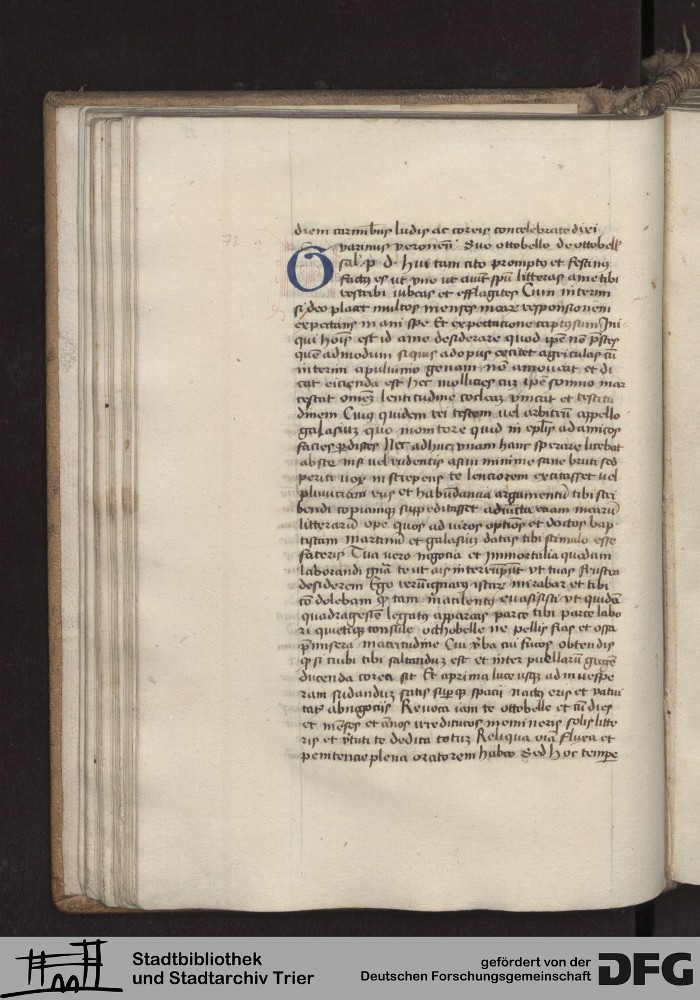 72
diem carminibus ludis ac coreis concelebrato dixi
Guarinus veronen̄ Suo ottobello de ottobell
sal̄ p d Hui tam cito prompto et festinus
factus es ut vno ut aiunt spū litteras a me tibi
rescribi iubeas et efflagites Cum interim
si deo placet multos menses meam responsionem
expectans inani spe Et expectacione captus sum Ini
qui hoīs est id a me desiderare quod ipse nō p̄stes
quē admodum siquis ad opus excitet agricolas cū
interim a puluino genam nō amoueat et di
cat eicienda est hec mollicies cuȝ ipse somno mar
cescat omnē lentitudine cocleaȝ vincat et testitu
dinem Cuius quidem rei testem uel arbitrū appello
galasiuȝ quo monitore quid in ep̄lis ad amicos
facies p̄disces Nec adhuc vnam hanc sperare licebat
abs te nisi uel rudentis asini minime sane bruti sed
periti uox instrepens te lenciorem excitasset uel
eius et habundancia argumentū tibi scri
bendi copiamqȝ suppeditasset adiuncta etiam mearū
litterarū ope quos ad viros optīos et doctos bap
tistam martinū et galasiuȝ datas tibi stimulo esse
fateris Tua vero negocia et Immortalia quedam
laborandi gn̄a te ut ais interrūpūt vt tuas frustra
desiderem Ego mirabar et tibi
cōdolebam qȝ tam macilentus euasisti vt quidā
quadragesie legatus appareas parce tibi parce labo
ri quietiqȝ consule othobelle ne pellis fias et ossa
p̄ misera macritudine Cui v̄ba cui fucos obtendis
qȝ si cubi tibi saltanduȝ est et inter puellarū greges
ducenda corea sit Et a prima luce usqȝ ad in vespe
ram sudanduȝ satis supqȝ spacii nactus eris et vacui
tatē ab negociis Reuoca iam te ottobelle et cū dies
et mēses et annos memineris solis litte
ris et v̄tuti te dedita totuȝ Reliqua oīa fluxa et
penitencie plena oratorem habeo Sed hoc tempe
Stadtbibliothek
und Stadtarchiv Trier
gefördert von der
Deutschen Forschungsgemeinschaft
DFG